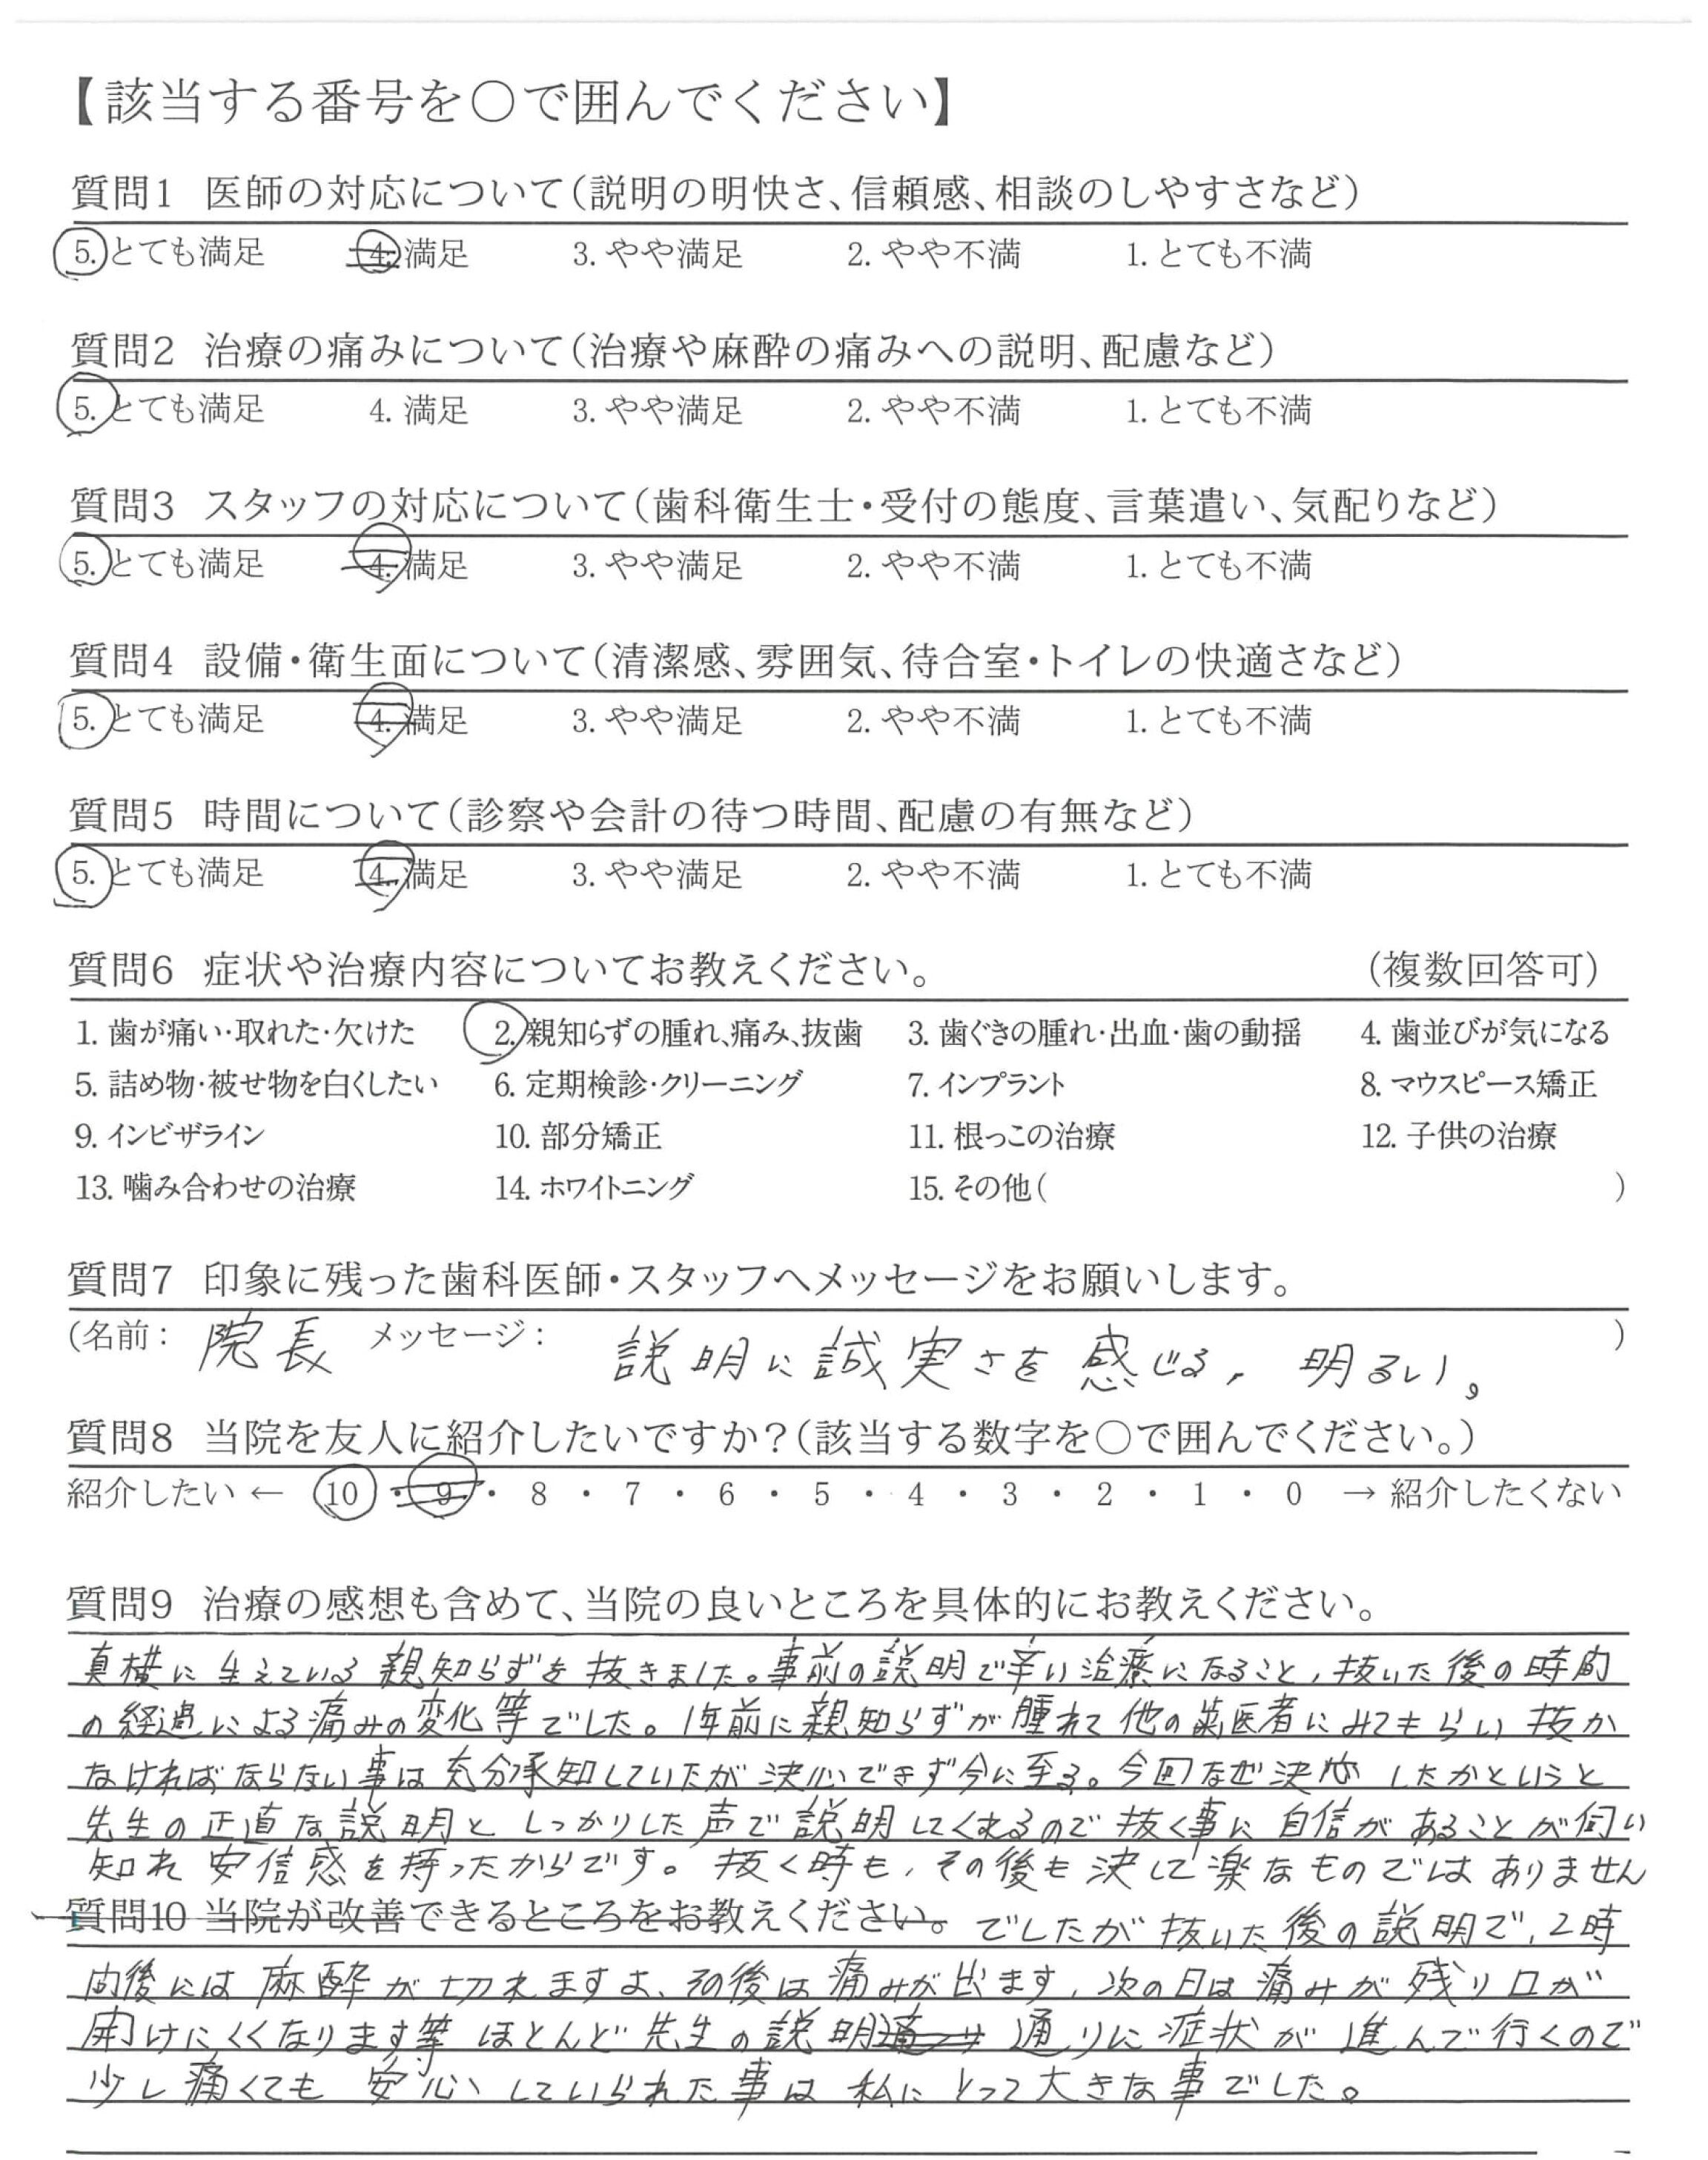 【該当する番号を○で囲んでください】
質問1 医師の対応について(説明の明快さ、信頼感、相談のしやすさなど)
5. とても満足 4. 満足 3. やや満足 2. やや不満 1. とても不満
質問2 治療の痛みについて(治療や麻酔の痛みへの説明、配慮など)
5. とても満足 4. 満足 3. やや満足 2. やや不満 1. とても不満
質問3 スタッフの対応について(歯科衛生士・受付の態度、言葉遣い、気配りなど)
5. とても満足 4. 満足 3. やや満足 2. やや不満 1. とても不満
質問4 設備・衛生面について(清潔感、雰囲気、待合室・トイレの快適さなど)
5. とても満足 4. 満足 3. やや満足 2. やや不満 1. とても不満
質問5 時間について(診察や会計の待つ時間、配慮の有無など)
5. とても満足 4. 満足 3. やや満足 2. やや不満 1. とても不満
質問6 症状や治療内容についてお教えください。 (複数回答可)
1. 歯が痛い・取れた・欠けた 2. 親知らずの腫れ、痛み、抜歯 3. 歯ぐきの腫れ・出血・歯の動揺 4. 歯並びが気になる
5. 詰め物・被せ物を白くしたい 6. 定期検診・クリーニング 7. インプラント 8. マウスピース矯正
9. インビザライン 10. 部分矯正 11. 根っこの治療 12. 子供の治療
13. 噛み合わせの治療 14. ホワイトニング 15. その他( )
質問7 印象に残った歯科医師・スタッフへメッセージをお願いします。
(名前: 院長 メッセージ: 説明に誠実さを感じる, 明るい。 )
質問8 当院を友人に紹介したいですか?(該当する数字を○で囲んでください。)
紹介したい ← 10 ・ 9 ・ 8 ・ 7 ・ 6 ・ 5 ・ 4 ・ 3 ・ 2 ・ 1 ・ 0 → 紹介したくない
質問9 治療の感想も含めて、当院の良いところを具体的にお教えください。
真横に生えている親知らずを抜きました。事前の説明で辛い治療になること, 抜いた後の時間
の経過による痛みの変化等でした。1年前に親知らずが腫れて他の歯医者にみてもらい抜か
なければならない事は充分承知していたが決心できず今に至る。今回なぜ決心したかというと
先生の正直な説明としっかりした声で説明してくれるので抜く事に自信があることが伺い
知れ安信感を持ったからです。抜く時も, その後も決して楽なものではありません
質問10 当院が改善できるところをお教えください。 でしたが抜いた後の説明で, 2時
間後には麻酔が切れますよ、その後は痛みが出ます, 次の日は痛みが残り口が
開けにくくなります等ほとんど先生の説明通りに症状が進んで行くので
少し痛くても安心していられた事は私にとって大きな事でした。